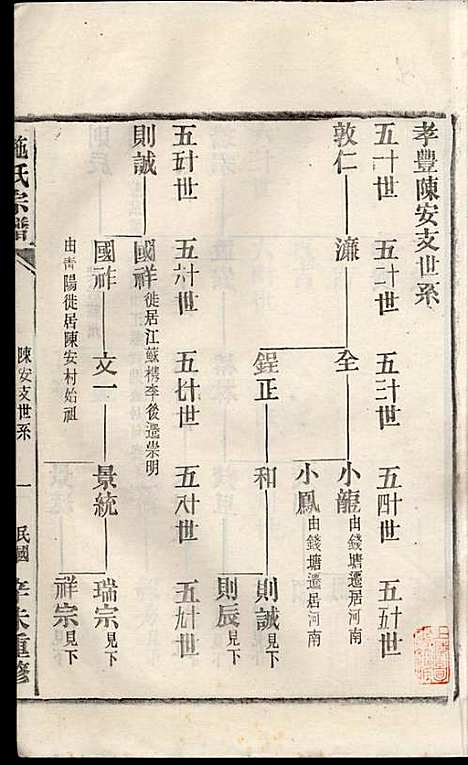 孝豐陳安支世系
五十世 五十一世 五十二世 五十三世 五十四世 五十五世
敦仁 濂 全 小龍由錢塘遷居河南
小鳳由錢塘遷居河南
鋥正 和 則誠見下
則辰見下
五十五世 五十六世 五十七世 五十八世 五十九世
則誠 國祥徙居江蘇檇李後遷崇明
國祚 文一 景統 瑞宗見下
祥宗見下
由青陽徙居陳安村始祖
施氏宗譜
陳安支世系
一
民國
辛未重修